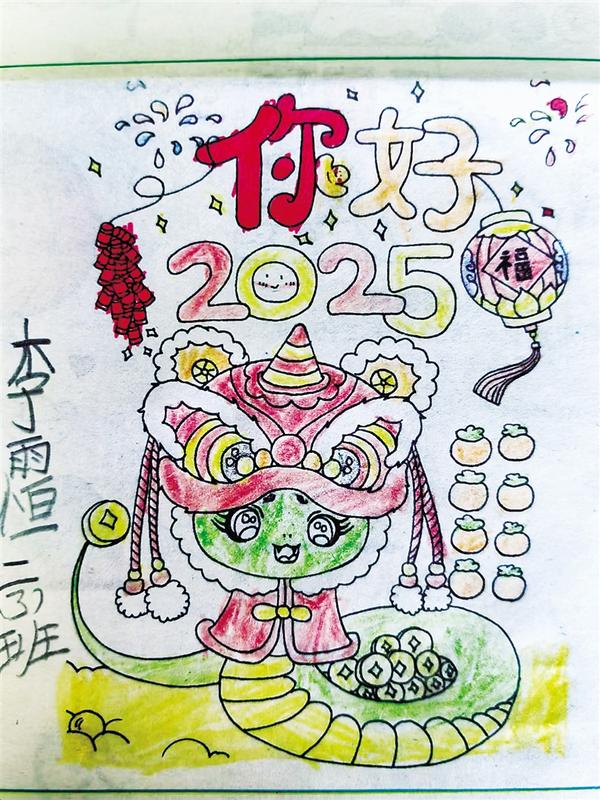 你好
2025
福
李雨恒 二(3)班